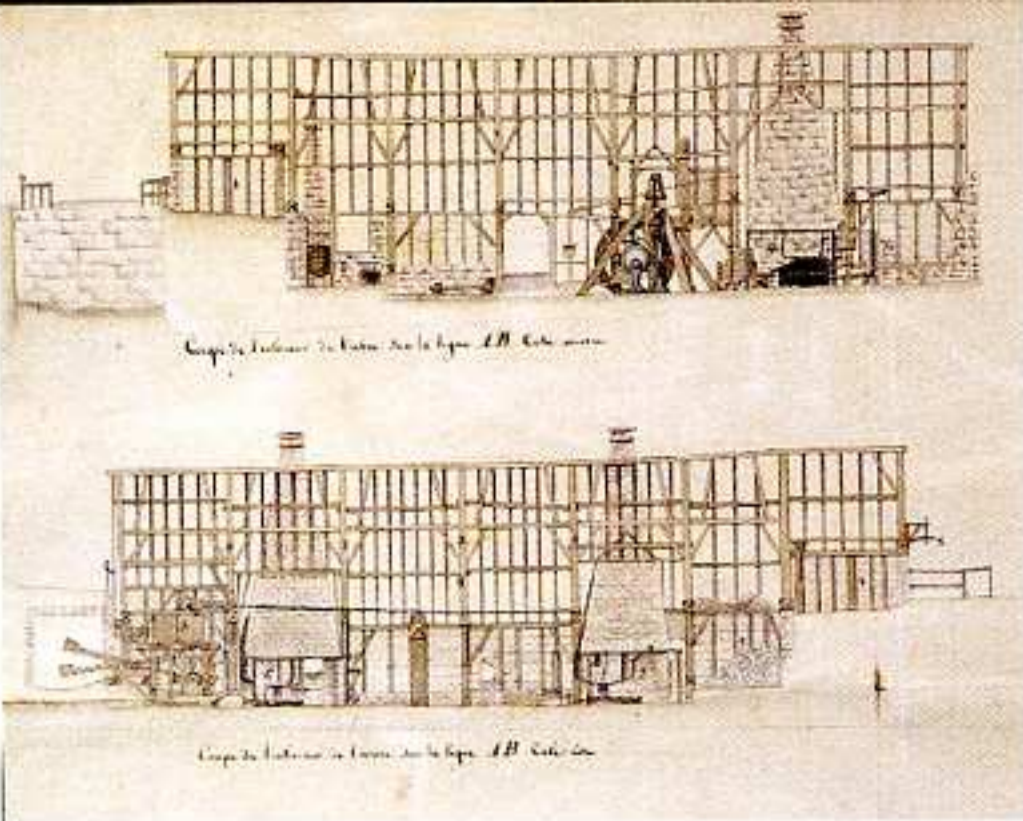 Coupe de l'interieur de l'usine sur la ligne AB Coté
Coupe de l'interieur de l'usine sur la ligne AB Coté